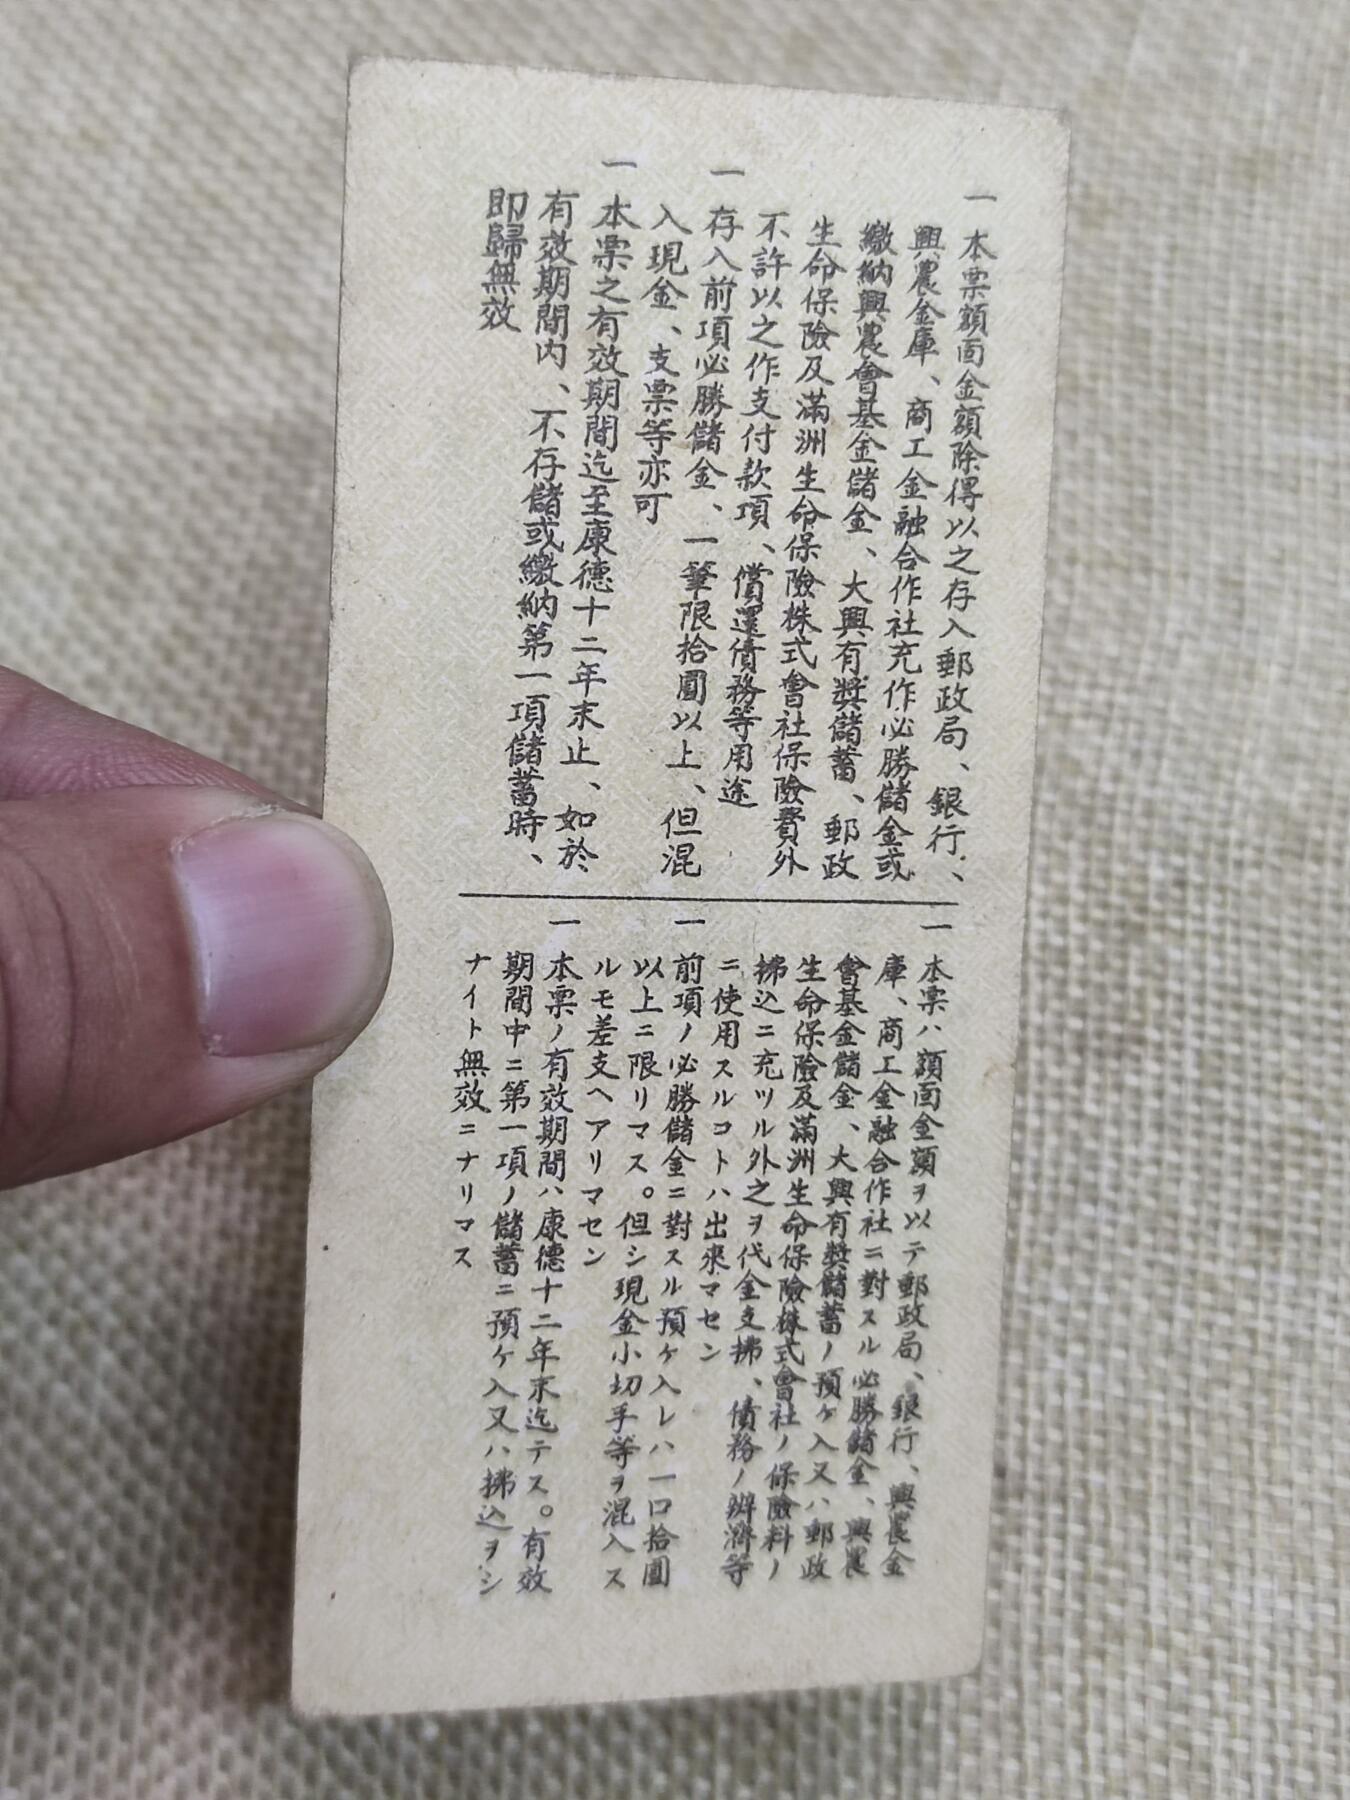 一 本票額面金額除得以之存入郵政局、銀行、
興農金庫、商工金融合作社充作必勝儲金或
繳納興農會基金儲金、大興有獎儲蓄、郵政
生命保險及滿洲生命保險株式會社保險費外
不許以之作支付款項、償還債務等用途
一 存入前項必勝儲金、一筆限拾圓以上、但混
入現金、支票等亦可
一 本票之有效期間迄至康德十二年末止、如於
有效期間內、不存儲或繳納第一項儲蓄時、
即歸無效
一 本票ハ額面金額ヲ以テ郵政局、銀行、興農金
庫、商工金融合作社ニ對スル必勝儲金、興農
會基金儲金、大興有獎儲蓄ノ預ケ入又ハ郵政
生命保險及滿洲生命保險株式會社ノ保險料ノ
拂込ニ充ツル外之ヲ代金支拂、債務ノ辨濟等
ニ使用スルコトハ出來マセン
一 前項ノ必勝儲金ニ對スル預ケ入レハ一口拾圓
以上ニ限リマス。但シ現金小切手等ヲ混入ス
ルモ差支ヘアリマセン
一 本票ノ有效期間ハ康德十二年末迄テス。有效
期間中ニ第一項ノ儲蓄ニ預ケ入又ハ拂込ヲシ
ナイト無效ニナリマス